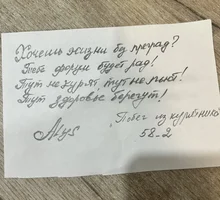 Хочешь жизни без преград?
Тебе форум будет рад!
Тут не курят, тут не пьют!
Тут здоровье берегут!
Alys
"Побег из курятника"
58-2